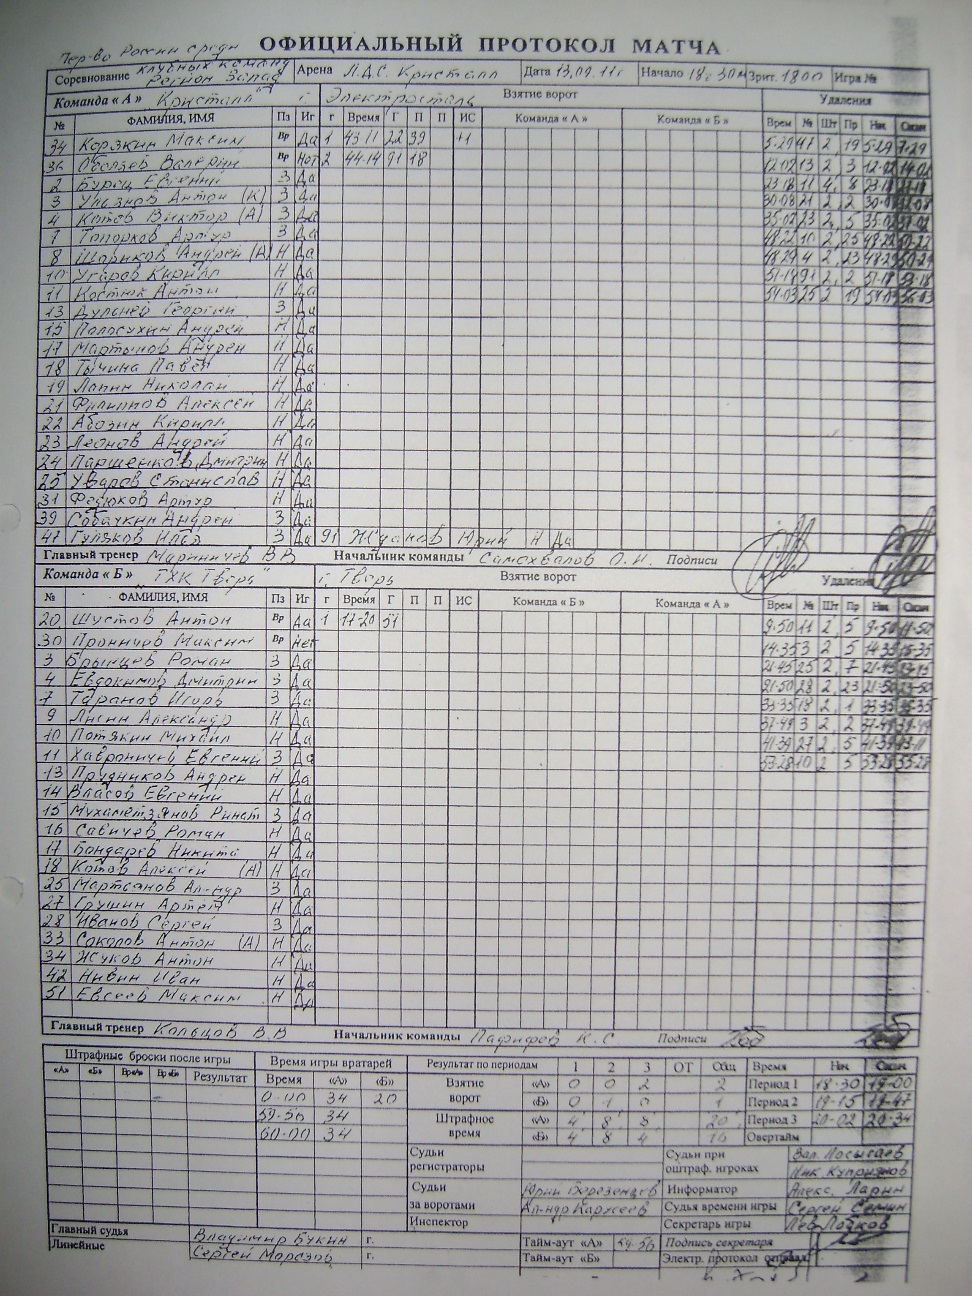 Пер-во России среди
ОФИЦИАЛЬНЫЙ ПРОТОКОЛ МАТЧА
Соревнование клубных команд Регион Запад Арена Л.Д.С. Кристалл Дата 13.09.11г Начало 18ч30м Зрит. 1800 Игра №
Команда «А» Кристалл" г. Электросталь Взятие ворот Удаления
№ ФАМИЛИЯ, ИМЯ Пз Иг г Время Г П П ИС Команда «А» Команда «Б» Врем № Шт Пр Нач Оконч
34 Корякин Максим Вр Да 1 43 11 22 39 +1 5-29 47 2 19 5-29 7-29
36 Обозаев Валерин Вр Нет 2 44-14 91 18 12-02 13 2 3 12-02 14-02
2 Бурец Евгений З Да 23-18 11 4 8 23-18
3 Ульянов Антон (К) З Да 30-08 21 2 2 30-08
4 Котов Виктор (А) З Да 35-02 23 2 5 35-02
7 Топорков Артур З Да 48-22 10 2 25 48-22 50-22
8 Шариков Андрей (А) Н Да 48-29 4 2 23 48-29 50-29
10 Угаров Кирилл Н Да 51-18 91 2 2 51-18 53-18
11 Костин Антон Н Да 54-03 25 2 19 54-03 56-03
13 Дуленев Георгий З Да
15 Полосухин Андрей Н Да
17 Мартынов Андрей Н Да
18 Тычина Павел Н Да
19 Лапин Николай Н Да
21 Филиппов Алексей Н Да
22 Абозин Кирилл Н Да
23 Леонов Андрей Н Да
24 Паршенков Дмитрий Н Да
25 Уваров Станислав Н Да
31 Федюков Артур Н Да
39 Собачкин Андрей З Да
47 Гуляков Илья З Да 91 Жданов Юрий Н Да
Главный тренер Мариничев В В Начальник команды Самохвалов О.Н. Подписи
Команда «Б» "ТХК Тверь" г. Тверь Взятие ворот Удаления
№ ФАМИЛИЯ, ИМЯ Пз Иг г Время Г П П ИС Команда «Б» Команда «А» Врем № Шт Пр Нач Оконч
20 Шустов Антон Вр Да 1 17-20 51 9-50 11 2 5 9-50 11-50
30 Проничев Максим Вр Нет 14-35 3 2 5 14-35 16-35
3 Брынцев Роман З Да 21-45 25 2 7 21-45 23-15
4 Евдокимов Дмитрий З Да 21-50 28 2 23 21-50 23-50
7 Таранов Игорь З Да 33-35 18 2 1 33-35 35-35
9 Лисин Александр Н Да 37-49 3 2 2 37-49 39-49
10 Потякин Михаил Н Да 41-39 27 2 5 41-39 43-11
11 Хаврончев Евгений З Да 53-28 10 2 5 53-28 55-28
13 Прудников Андрей Н Да
14 Власов Евгений Н Да
15 Мухаметзянов Ринат З Да
16 Савичев Роман Н Да
17 Бондарев Никита Н Да
18 Котов Алексей (А) Н Да
25 Мартсанов Ал-ндр З Да
27 Грушин Артем Н Да
28 Иванов Сергей З Да
33 Соколов Антон (А) Н Да
34 Жуков Антон Н Да
42 Нивин Иван Н Да
51 Евсеев Максим Н Да
Главный тренер Кольцов В.В Начальник команды Парифов К.С Подписи
Штрафные броски после игры Время игры вратарей Результат по периодам 1 2 3 ОТ Общ Время
«А» «Б» Вр«А» Вр«Б» Результат Время «А» «Б» Взятие ворот «А» 0 0 2 2 Период 1 18-30 19-00
0-00 34 20 «Б» 0 1 0 1 Период 2 19-15 19-47
59-56 34 Штрафное время «А» 4 8 8 20 Период 3 20-02 20-34
60-00 34 «Б» 4 8 4 16 Овертайм
Судьи регистраторы Судьи при оштраф. игроках Вал. Лосысаев
Ник. Куприянов
Судьи за воротами Юрий Березенцев Информатор Алекс. Ларин
Ал-ндр Каржеев Судья времени игры Сергей Семин
Инспектор Секретарь игры Лев Лобков
Главный судья Владимир Букин г. Тайм-аут «А» 59-56 Подпись секретаря
Линейные Сергей Морозов г. Тайм-аут «Б» Электр. протокол